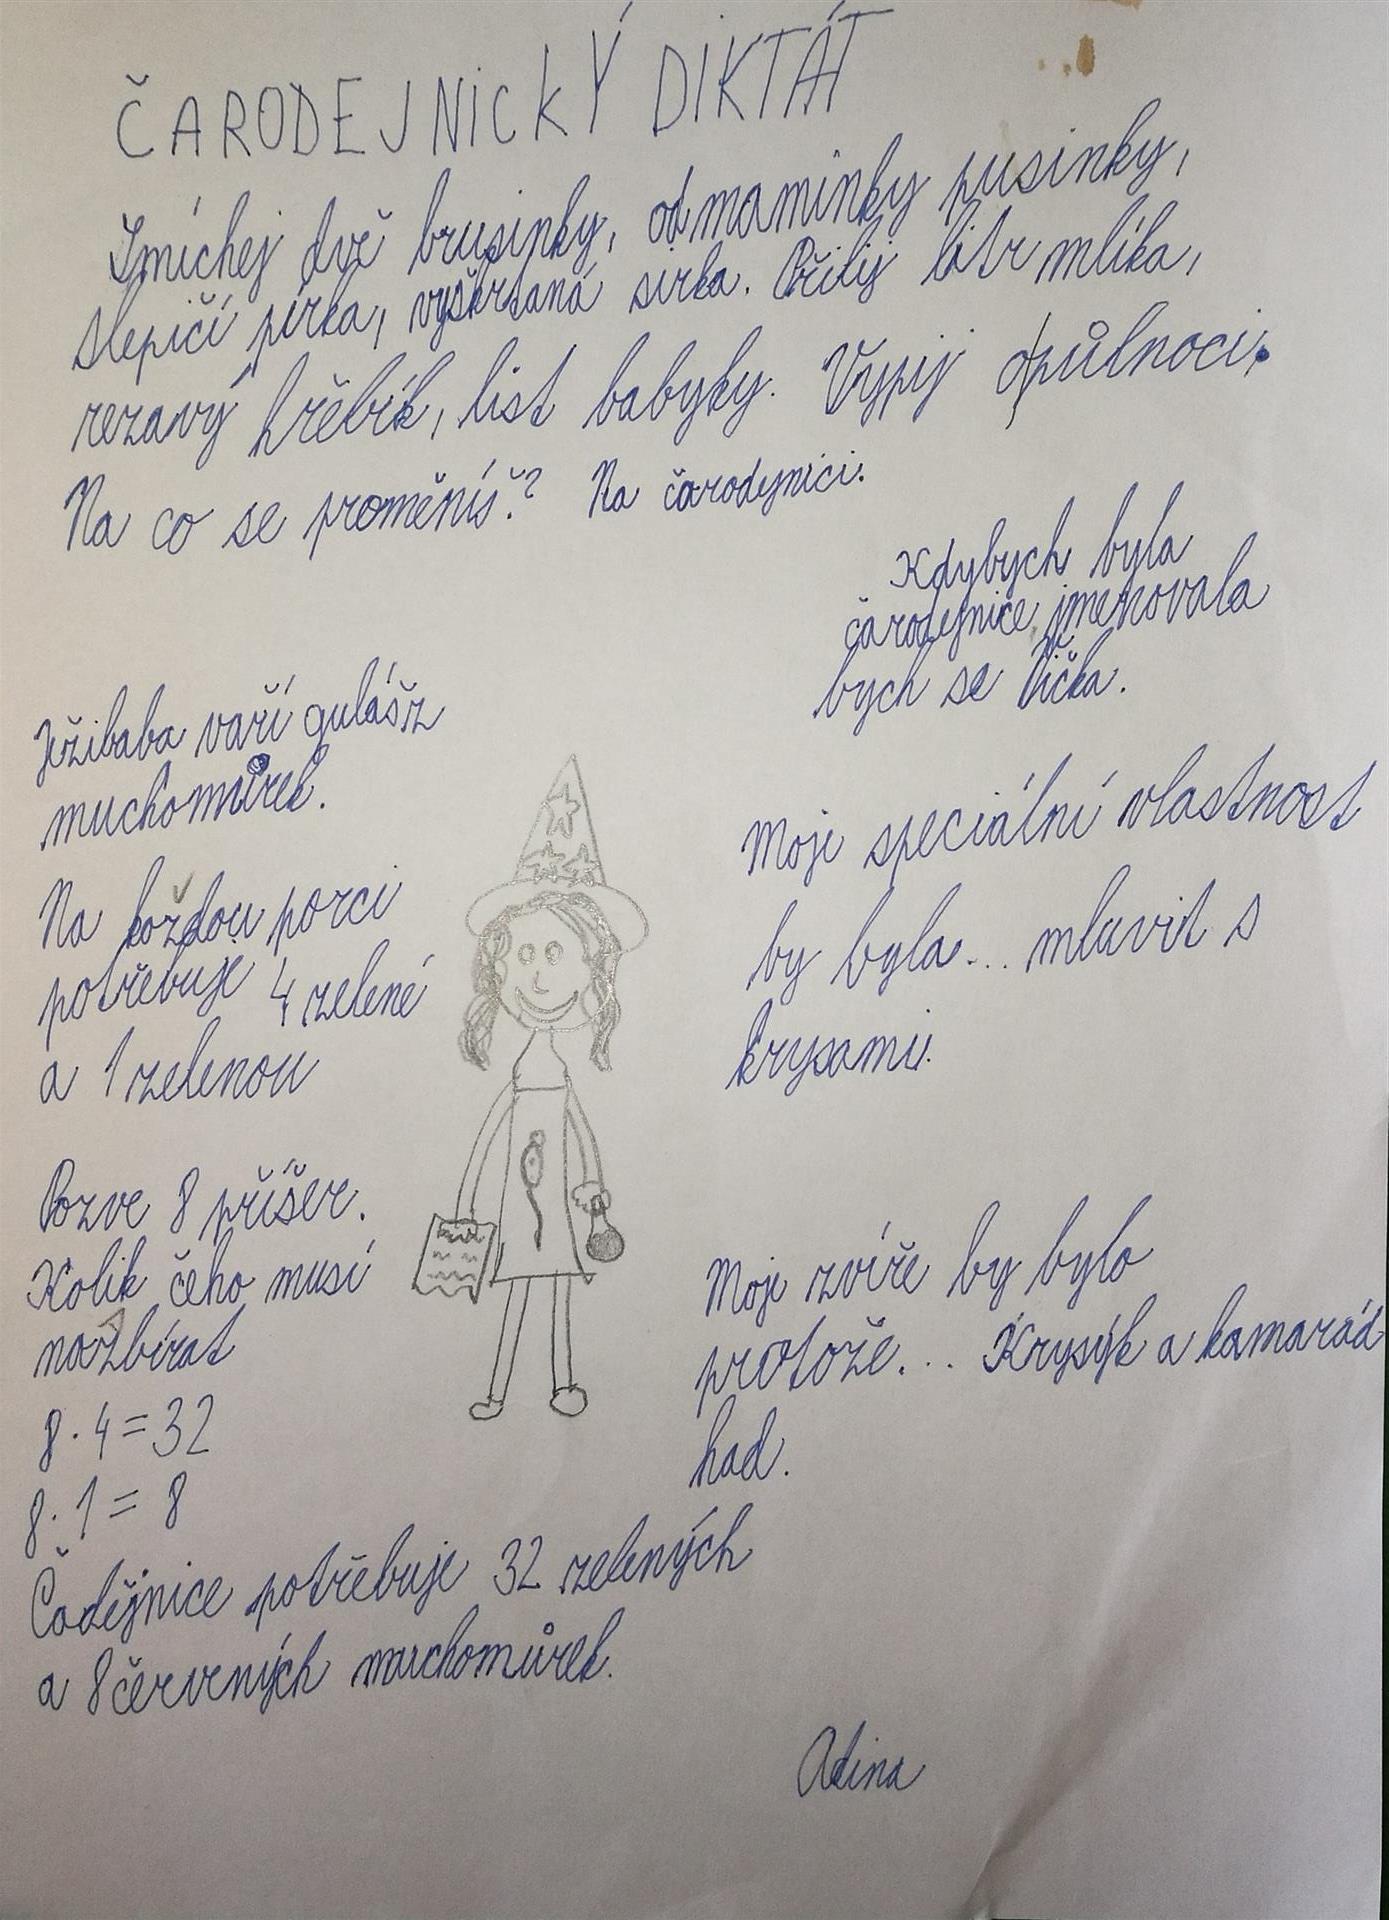 ČARODEJNICKÝ DIKTÁT
Smíchej dvě brusinky, od maminky pusinky,
slepičí pírka, vyškrtaná sirka. Přilij litr mlíka,
rezavý hřebík, list babyky. Vypij opůlnoci.
Na co se proměníš? Na čarodynici.
Kdybych byla
čarodejnice jmenovala
bych se Vička.
Ježibaba vaří gulášz
muchomůrek.
Na každou porci
potřebuje 4 zelené
a 1 zelenou
Pozve 8 příšer.
Kolik čeho musí
nazbírat
8·4=32
8·1=8
Čodějnice potřebuje 32 zelených
a 8 červených muchomůrek.
Moje speciální vlastnost
by byla... mluvit s
krysami.
Moje zvíře by bylo
protože... Krysýk a kamarád
had.
Adina